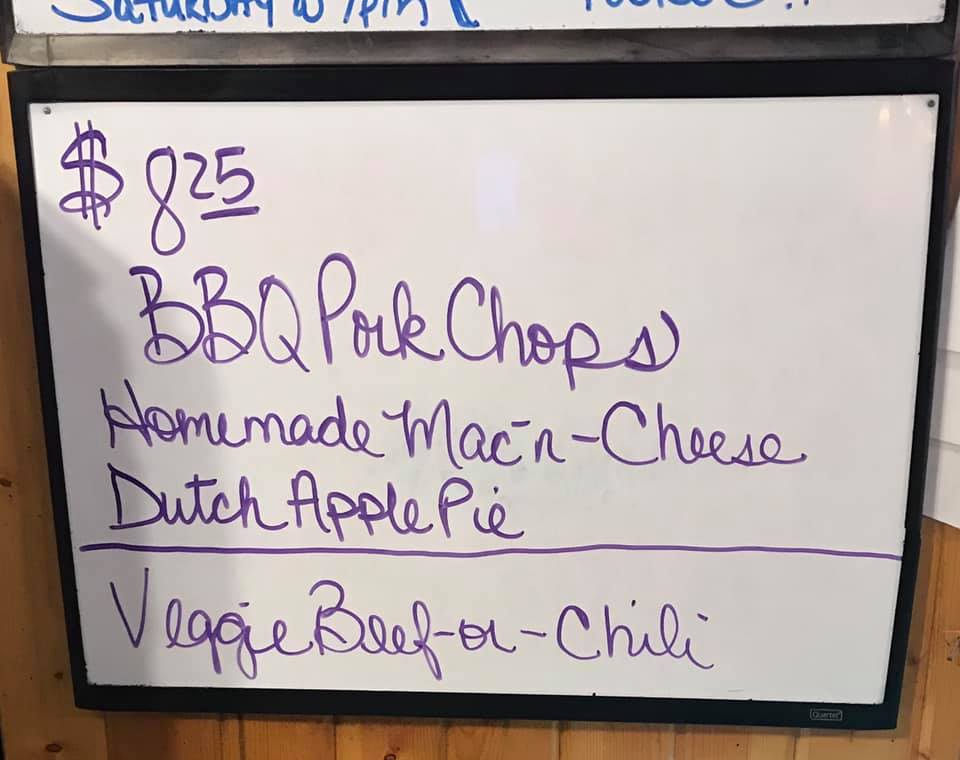 Saturday @ 7pm
$ 8.25
BBQ Pork Chops
Homemade Mac-n-Cheese
Dutch Apple Pie
Veggie Beef-or-Chili
Quartet